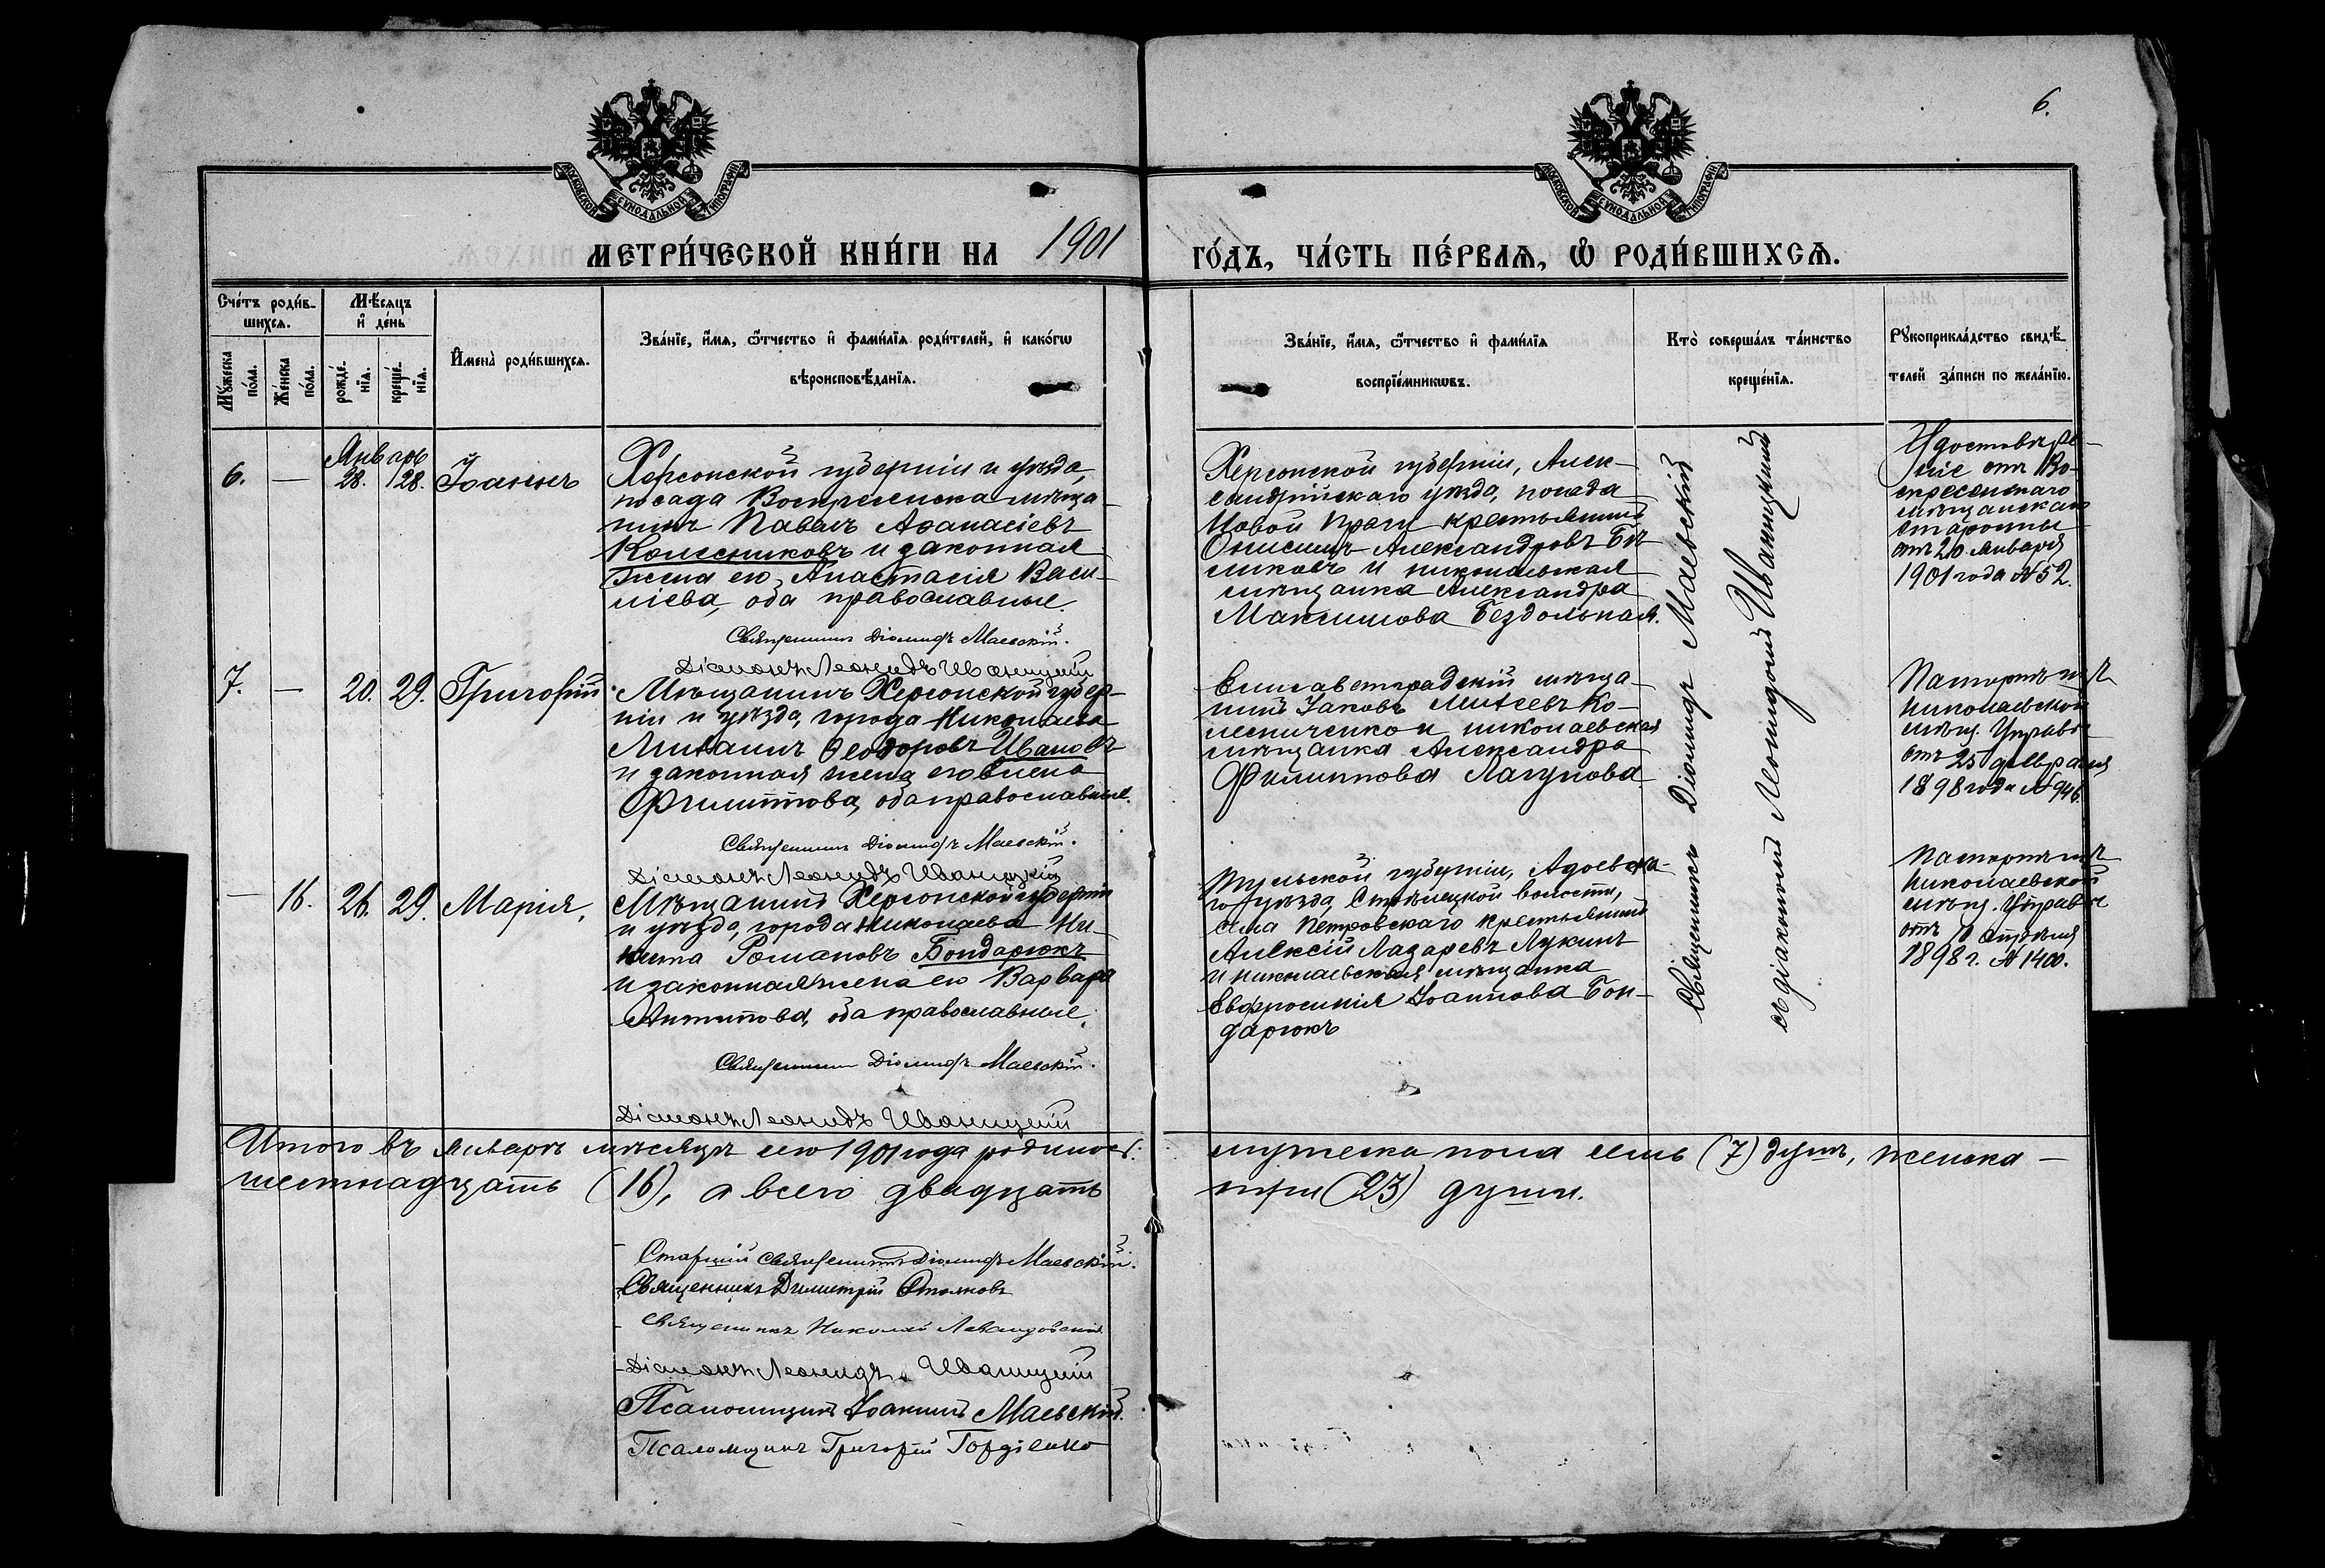 6.
МОСКОВСКОЙ СѴНОДАЛЬНОЙ ТИПОГРАФІИ.
МОСКОВСКОЙ СѴНОДАЛЬНОЙ ТИПОГРАФІИ.
МЕТРИ́ЧЕСКОЙ КНИ́ГИ НА 1901
ГО́ДЪ, ЧА́СТЬ ПЕ́РВАѦ, Ѽ РОДИ́ВШИХСѦ.
Сче́тъ роди́в-
шихсѧ.
Мѣ́сѧцъ
и҆ де́нь
Мꙋ́жеска
по́ла.
Же́нска
по́ла.
рожде́-
нїѧ.
креще́-
нїѧ.
И҆мена̀ роди́вшихсѧ.
Зва́нїе, и҆́мѧ, ѻ҆́тчество и҆ фами́лїѧ роди́телей, и҆ како́гѡ
вѣроисповѣ́данїѧ.
Зва́нїе, и҆́мѧ, ѻ҆́тчество и҆ фами́лїѧ
воспрїе́мникѡвъ.
Кто̀ соверша́лъ та́инство
креще́нїѧ.
Рꙋкоприкла́дство свидѣ́-
телей за́писи по жела́нїю.
Январь
6. — 28. 28. Іоаннъ
Херсонской губерніи и уѣзда,
посада Воскресенска мѣща-
нинъ Павелъ Аѳанасіевъ
Колесниковъ и законная
жена его Анастасія Васи-
ліева, оба православные.
Священникъ Діомидъ Маевскій.
Діаконъ Леонидъ Иваницкій
Херсонской губерніи, Алек-
сандрійскаго уѣзда, посада
Новой Праги крестьянинъ
Онисимъ Александровъ Бѣ-
ликовъ и николаевская
мѣщанка Александра
Максимова Бездольная.
Удостовѣре-
ніе отъ Во-
скресенскаго
мѣщанскаго
старосты
отъ 20 Января
1901 года № 52.
7. — 20. 29. Григорій
Мѣщанинъ Херсонской губер-
ніи и уѣзда, города Николаева
Ѳеодоровъ Ивановъ
и законная жена его Елена
Филиппова, оба православные.
Священникъ Діомидъ Маевскій.
Діаконъ Леонидъ Иваницкій
Елисаветградскій мѣща-
нинъ Іаковъ Матѳеевъ Ко-
лесниченко и николаевская
мѣщанка Александра
Филиппова Лагунова
Паспортъ изъ
Николаевской
мѣщ. Управы
отъ 25 февраля
1898 года № 946.
— 16. 26. 29. Марія.
Мѣщанинъ Херсонской губерніи
и уѣзда, города Николаева Ни-
кита Романовъ Бондарюкъ
и законная жена его Варвара
Антипова, оба православные.
Священникъ Діомидъ Маевскій.
Діаконъ Леонидъ Иваницкій
Тульской губерніи, Адоевска-
го уѣзда, Стрѣлецкой волости,
села Петровскаго крестьянинъ
Алексій Лазаревъ Лукинъ
и николаевская мѣщанка
Евфросинія Іоаннова Бон-
дарюкъ
Паспортъ изъ
Николаевской
мѣщ. Управы
отъ апрѣля
1898 г. № 1400.
Священникъ Діомидъ Маевскій
съ діакономъ Леонидомъ Иваницкимъ
Итого въ Январѣ мѣсяцѣ сего 1901 года родилось:
мужеска пола семь (7) душъ, женска —
шестнадцать (16), а всего двадцать
три (23) души.
Старшій Священникъ Діомидъ Маевскій.
Священникъ Димитрій Стояновъ
Священникъ Николай Левандовскій
Діаконъ Леонидъ Иваницкій
Псаломщикъ Іоакимъ Маевскій.
Псаломщикъ Григорій Гордіенко